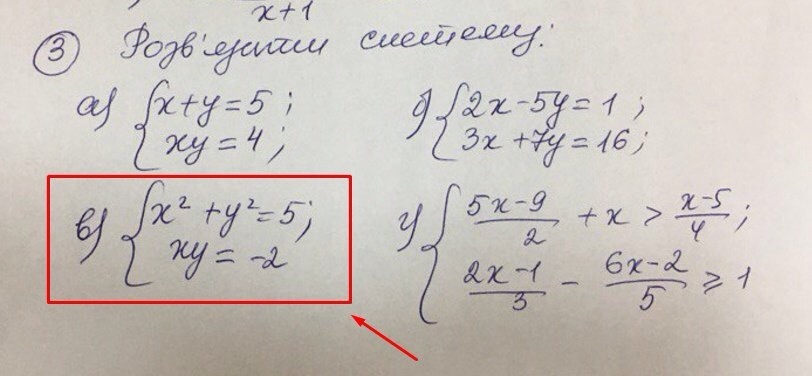 x+1
③ Розв'язати систему:
а) {x+y=5;
xy=4;
б) {2x-5y=1;
3x+7y=16;
в) {x²+y²=5;
xy=-2
г) {(5x-9)/2 + x > (x-5)/4;
(2x-1)/3 - (6x-2)/5 ≥ 1